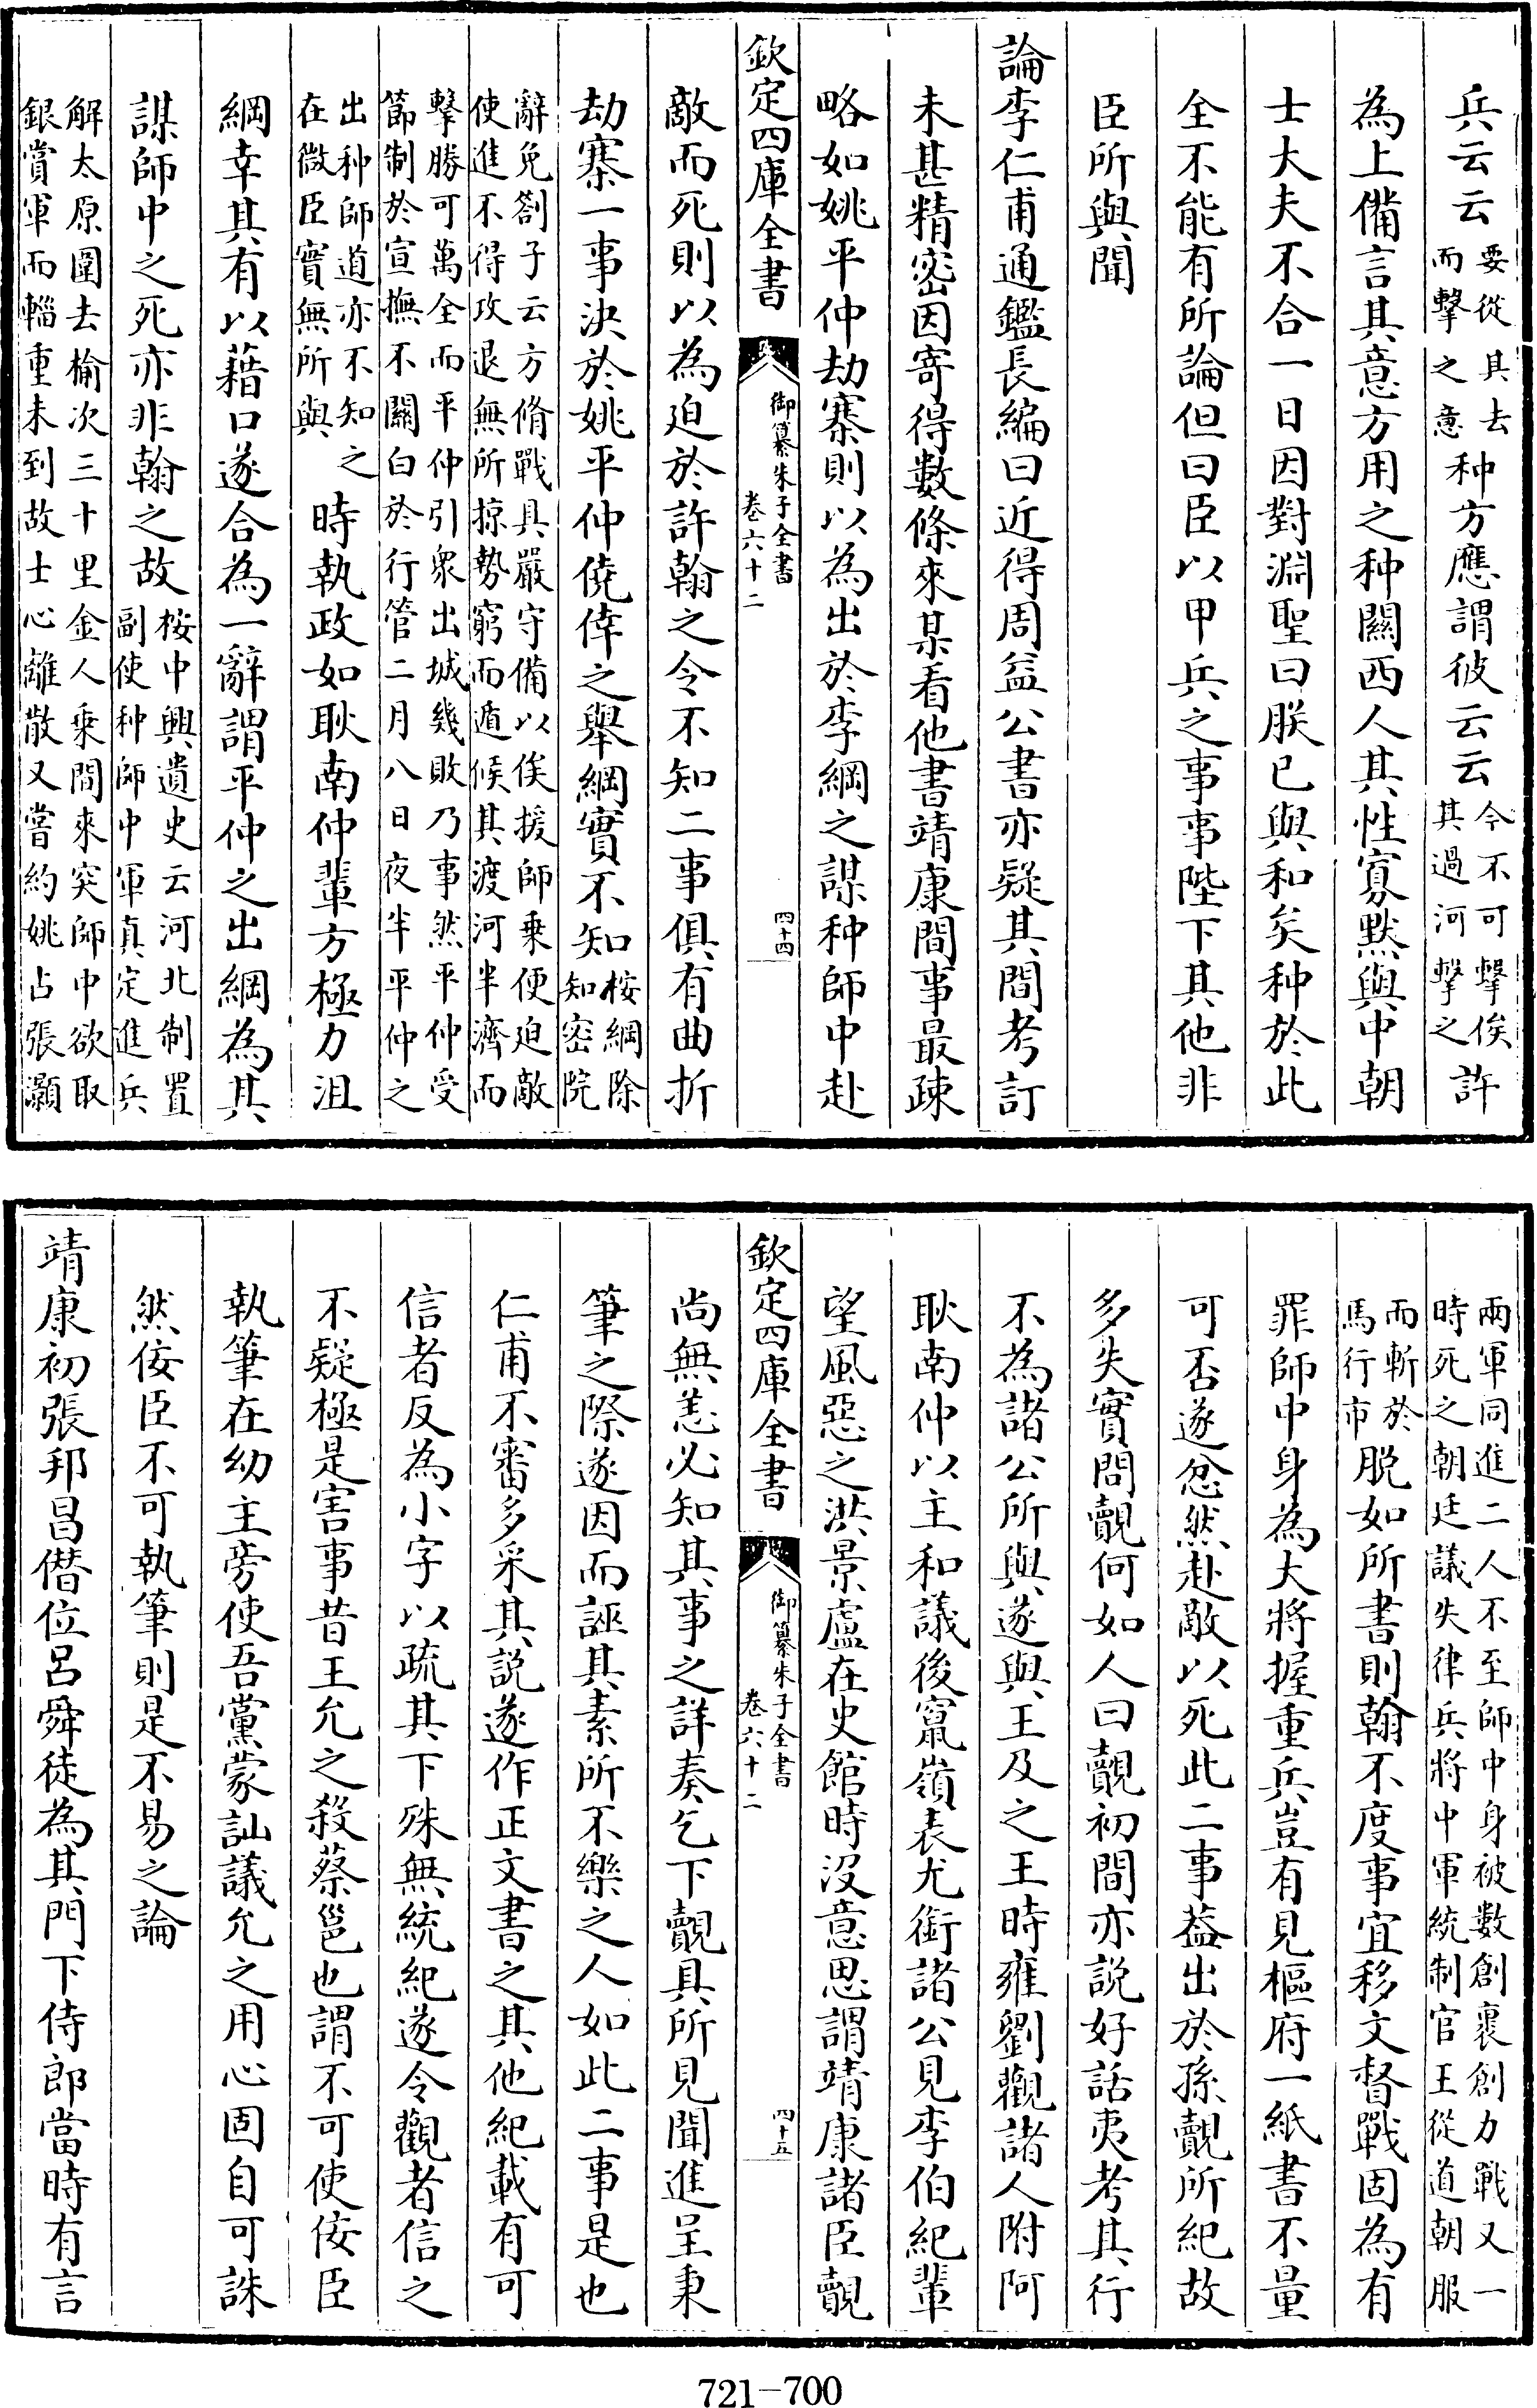 兵云云要從其去而擊之意种方應謂彼云云今不可擊俟其過河擊之許
為上備言其意方用之种關西人其性寡黙與中朝
士大夫不合一日因對淵聖曰朕已與和矣种於此
全不能有所論但曰臣以甲兵之事事陛下其他非
臣所與聞
論李仁甫通鑑長編曰近得周益公書亦疑其間考訂
未甚精密因寄得數條來某看他書靖康間事最疎
略如姚平仲劫寨則以為出於李綱之謀种師中赴
欽定四庫全書 御纂朱子全書 卷六十二 四十四
敵而死則以為迫於許翰之令不知二事俱有曲折
劫寨一事決於姚平仲僥倖之舉綱實不知桉綱除知密院
辭免劄子云方脩戰具嚴守備以俟援師乗便迫敵
使進不得攻退無所掠勢窮而遁候其渡河半濟而
擊勝可萬全而平仲引衆出城幾敗乃事然平仲受
節制於宣撫不關白於行管二月八日夜半平仲之
出种師道亦不知之在微臣實無所與時執政如耿南仲輩方極力沮
綱幸其有以藉口遂合為一辭謂平仲之出綱為其
謀師中之死亦非翰之故桉中興遺史云河北制置副使种師中軍真定進兵
解太原圍去榆次三十里金人乗間來突師中欲取
銀賞軍而輜重未到故士心離散又嘗約姚占張灝
兩軍同進二人不至師中身被數創裹創力戰又一
時死之朝廷議失律兵將中軍統制官王從道朝服
而斬於馬行市脱如所書則翰不度事宜移文督戰固為有
罪師中身為大將握重兵豈有見樞府一紙書不量
可否遂忿然赴敵以死此二事葢出於孫覿所紀故
多失實問覿何如人曰覿初間亦説好話夷考其行
不為諸公所與遂與王及之王時雍劉觀諸人附阿
耿南仲以主和議後竄嶺表尤銜諸公見李伯紀輩
望風惡之洪景盧在史館時没意思謂靖康諸臣覿
欽定四庫全書 御纂朱子全書 卷六十二 四十五
尚無恙必知其事之詳奏乞下覿具所見聞進呈秉
筆之際遂因而誣其素所不樂之人如此二事是也
仁甫不審多采其説遂作正文書之其他紀載有可
信者反為小字以疏其下殊無統紀遂令觀者信之
不疑極是害事昔王允之殺蔡邕也謂不可使佞臣
執筆在幼主旁使吾黨蒙訕議允之用心固自可誅
然佞臣不可執筆則是不易之論
靖康初張邦昌僭位呂舜徒為其門下侍郎當時有言
721-700